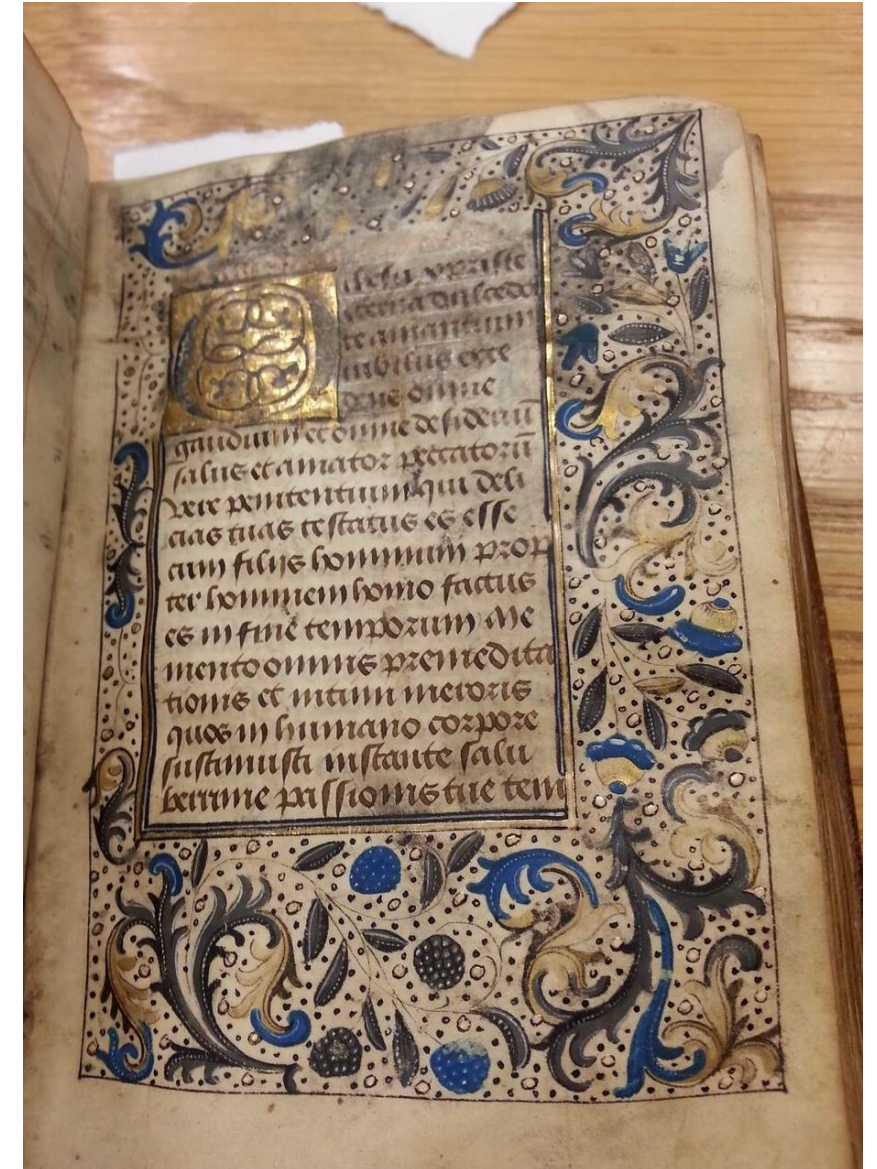 O ihesu xpriste
eterna dulcedo
te amantium
iubilus exce
dens omne
gaudium et omne desideriū
salus et amator peccatorū
vere penitentium qui deli
cias tuas testatus es esse
cum filijs hominum prop
ter hominem homo factus
es in fine temporum Me
mento omnis premedita
tionis et intimi meroris
quos in humano corpore
sustinuisti instante salu
berrime passionis tue tem